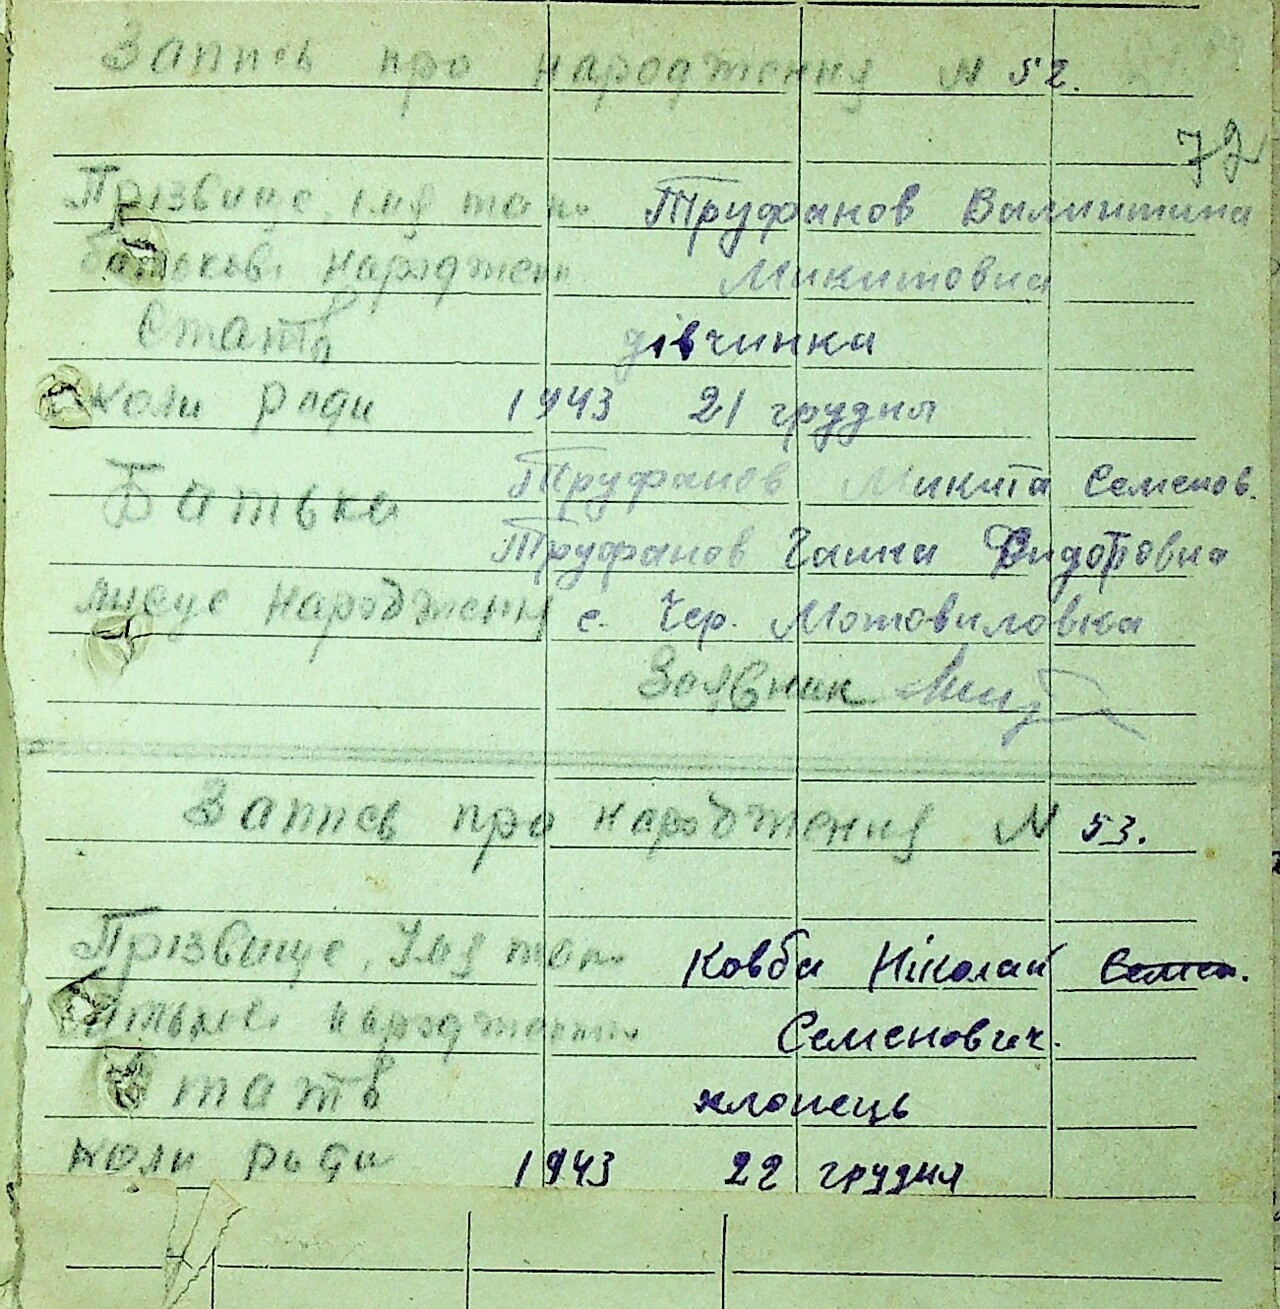 Запись про народження N 52.
72
Прізвище, імя та по Труфанов Валинтина
батькові народжен Микитовна
Стать дівчинка
Коли роди 1943 21 грудня
Батько Труфанов Микита Семенов.
Труфанов Ганна Федоровна
Мисце народження с. Чер. Мотовиловка
Заявник
Запись про народження N 53.
Прізвище, Імя та по Ковба Ніколай Семен.
батькові народжен Семенович.
Стать хлопець
Коли роди 1943 22 грудня